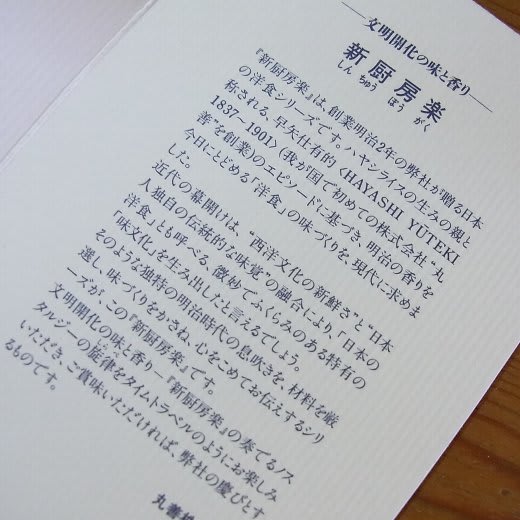 ―文明開化の味と香り―
新厨房楽
しんちゅうぼうがく
『新厨房楽』は、創業明治2年の弊社が贈る日本
の洋食シリーズです。ハヤシライスの生みの親と
称される、早矢仕有的〈HAYASHI YŪTEKI
1837~1901〉(我が国で初めての株式会社“丸
善”を創業)のエピソードに基づき、明治の香りを
今日にとどめる「洋食」の味づくりを、現代に求めま
した。
近代の幕開けは、“西洋文化の新鮮さ”と“日本
人独自の伝統的な味覚”の融合により、「日本の
洋食」とも呼べる、微妙でふくらみのある特有の
「味文化」を生み出したと言えるでしょう。
そのような独特の明治時代の息吹きを、材料を厳
選し、味づくりをかさね、心をこめてお伝えするシリ
ーズが、この『新厨房楽』です。
文明開化の味と香り―『新厨房楽』の奏でるノス
タルジーの旋律をタイムトラベルのようにお楽しみ
しらべ
いただき、ご賞味いただければ、弊社の慶びとす
るものです。
丸善